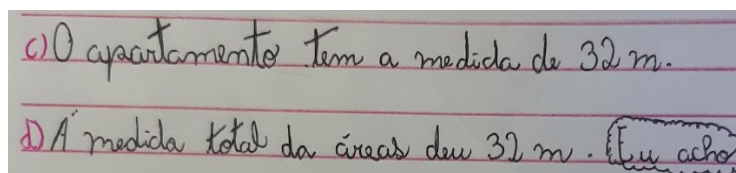 c) O apartamento tem a medida de 32 m.
d) A medida total da áreas deu 32 m. (Eu acho